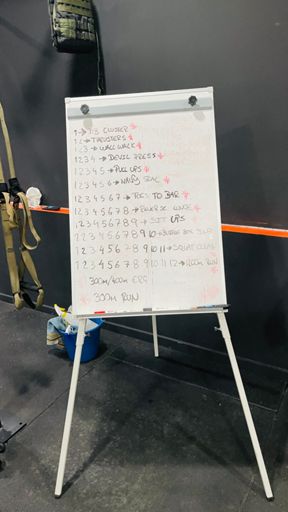 1 → D.B CLUSTER
1 2 → THRUSTERS
1 2 3 → WALL WALK
1 2 3 4 → DEVIL PRESS
1 2 3 4 5 → PULL UPS
1 2 3 4 5 6 → NAVY SEAL
1 2 3 4 5 6 7 → TOES TO BAR
1 2 3 4 5 6 7 8 → REVERSE LUNGE
1 2 3 4 5 6 7 8 9 → SIT UPS
1 2 3 4 5 6 7 8 9 10 → BOX
1 2 3 4 5 6 7 8 9 10 11 → SQUAT CLEAN
1 2 3 4 5 6 7 8 9 10 11 12 → 400m RUN
300m/400m ERG
300m RUN